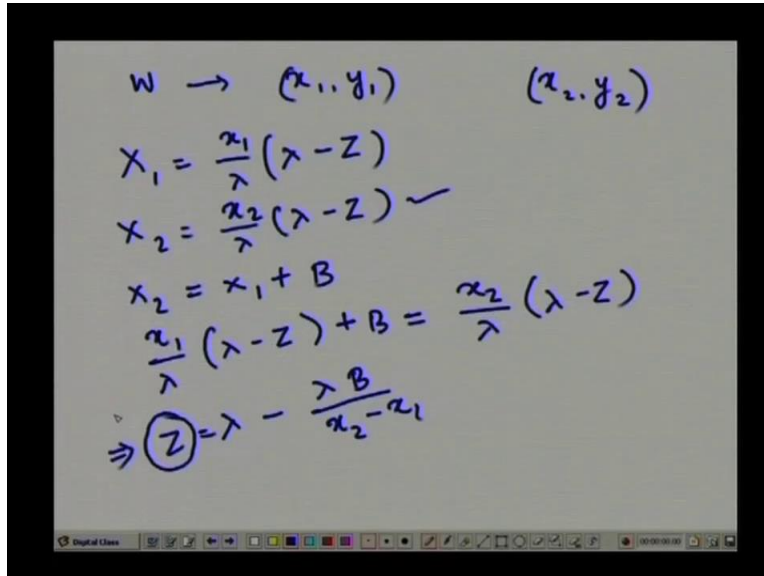 w → (x₁, y₁) (x₂, y₂)
X₁ = x₁/λ (λ - Z)
X₂ = x₂/λ (λ - Z) ✓
X₂ = X₁ + B
x₁/λ (λ - Z) + B = x₂/λ (λ - Z)
⇒ Z = λ - λB/(x₂ - x₁)
Digital Class 00:00:00:00